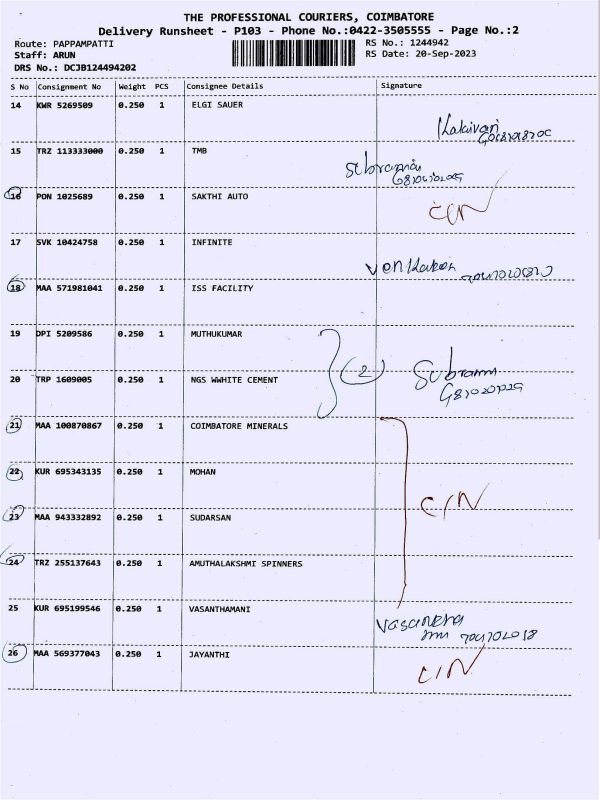 THE PROFESSIONAL COURIERS, COIMBATORE
Delivery Runsheet - P103 - Phone No.:0422-3505555 - Page No.:2
Route: PAPPAMPATTI RS No.: 1244942
Staff: ARUN RS Date: 20-Sep-2023
DRS No.: DCJB124494202
S No Consignment No Weight PCS Consignee Details Signature
14 KWR 5269509 0.250 1 ELGI SAUER
15 TRZ 113333000 0.250 1 TMB
16 PON 1025689 0.250 1 SAKTHI AUTO
C/N
17 SVK 10424758 0.250 1 INFINITE
18 MAA 571981041 0.250 1 ISS FACILITY
19 DPI 5209586 0.250 1 MUTHUKUMAR
(2)
20 TRP 1609005 0.250 1 NGS WWHITE CEMENT
21 MAA 100870867 0.250 1 COIMBATORE MINERALS
22 KUR 695343135 0.250 1 MOHAN
C/N
23 MAA 943332892 0.250 1 SUDARSAN
24 TRZ 255137643 0.250 1 AMUTHALAKSHMI SPINNERS
25 KUR 695199546 0.250 1 VASANTHAMANI
26 MAA 569377043 0.250 1 JAYANTHI
C/N